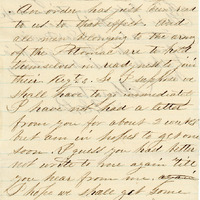 An order has just been read
to us to that effect. And
all men belonging to the army
of the Potomac are to hold
themselves in readiness to join
their Regts. So I suppose we
shall have to go immediately
I have not had a letter
from you for about 2 weeks
but am in hopes to get one
soon. I guess you had better
not write to me again till
you hear from me
I hope we shall get some